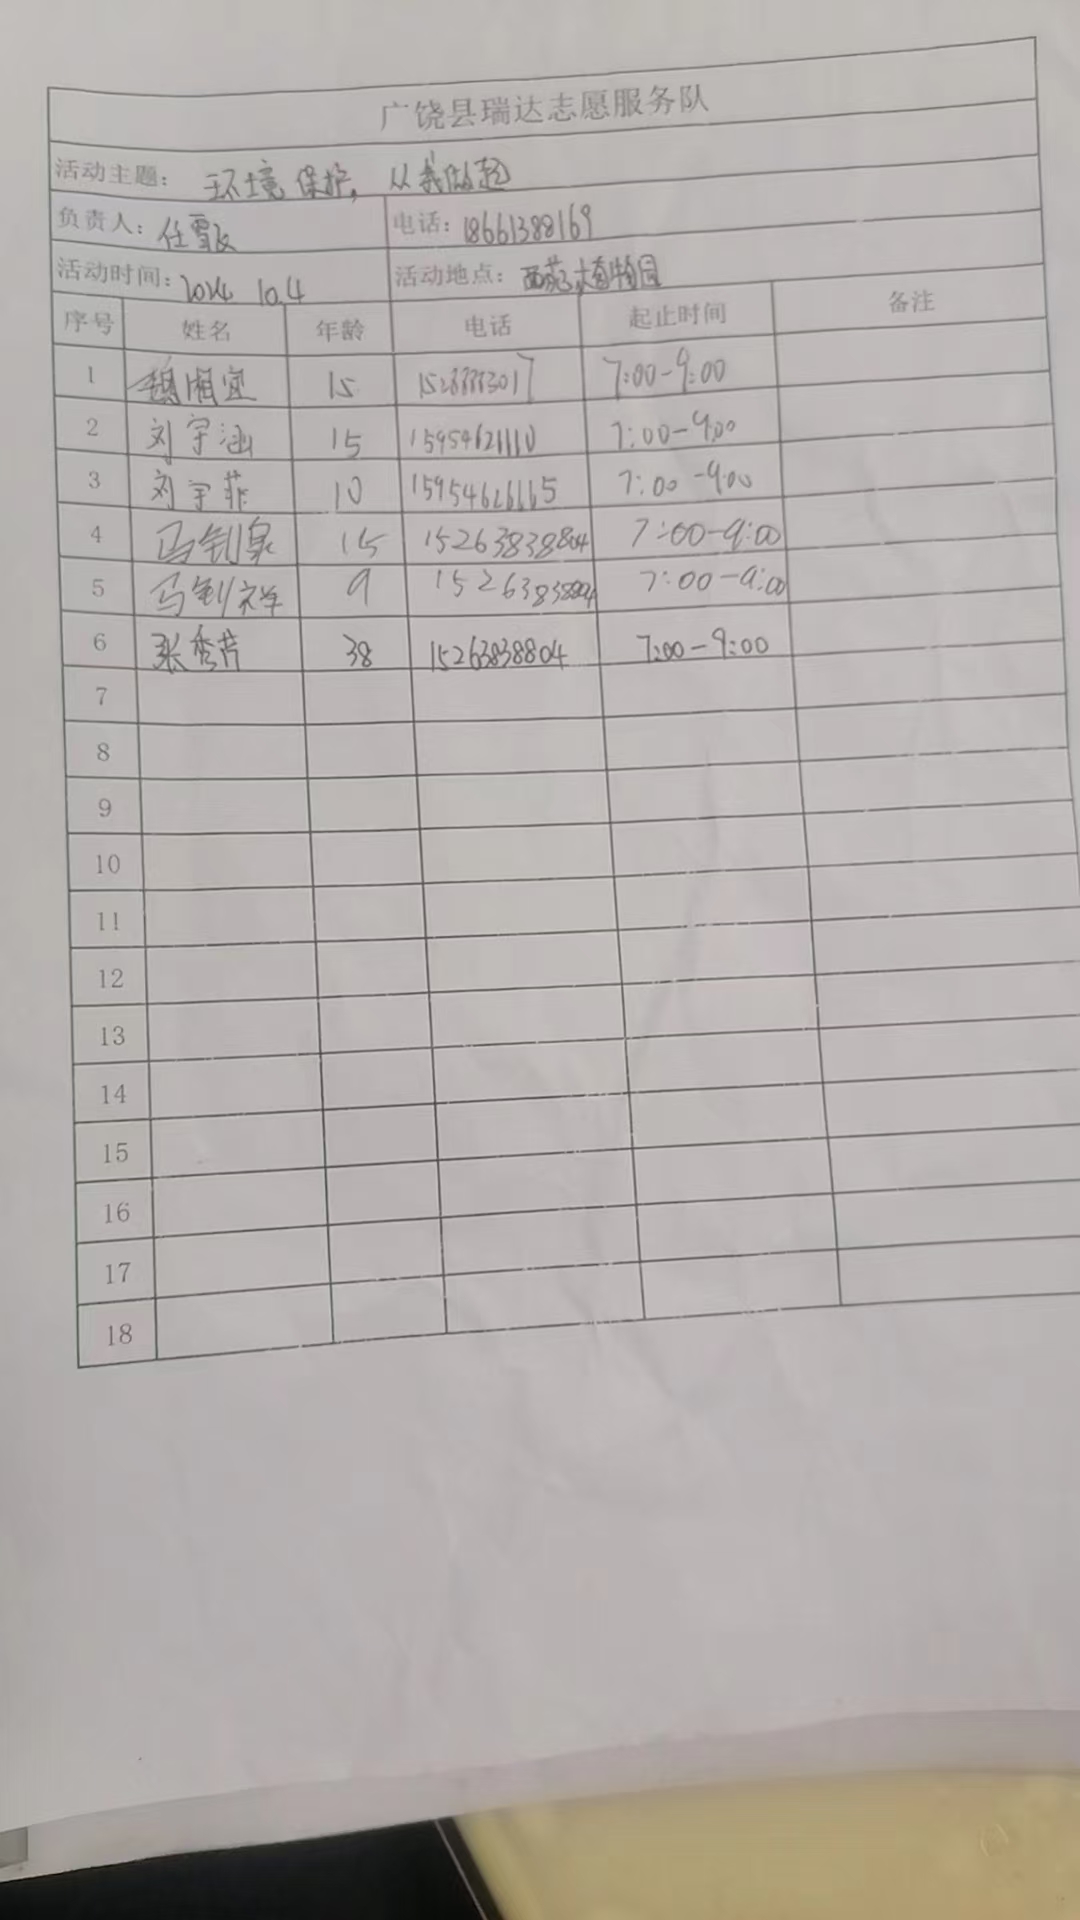 广饶县瑞达志愿服务队
活动主题: 环境保护, 从我做起
负责人: 任雪 电话: 18661388169
活动时间: 2024 10.4 活动地点: 西苑植物园
序号 姓名 年龄 电话 起止时间 备注
1 魏湘宜 15 15288883017 7:00-9:00
2 刘宇涵 15 15954621110 7:00-9:00
3 刘宇菲 10 15954626665 7:00-9:00
4 马钊 15 15263838804 7:00-9:00
5 马钊祥 9 15263838804 7:00-9:00
6 张秀芹 38 15263838804 7:00-9:00
7
8
9
10
11
12
13
14
15
16
17
18